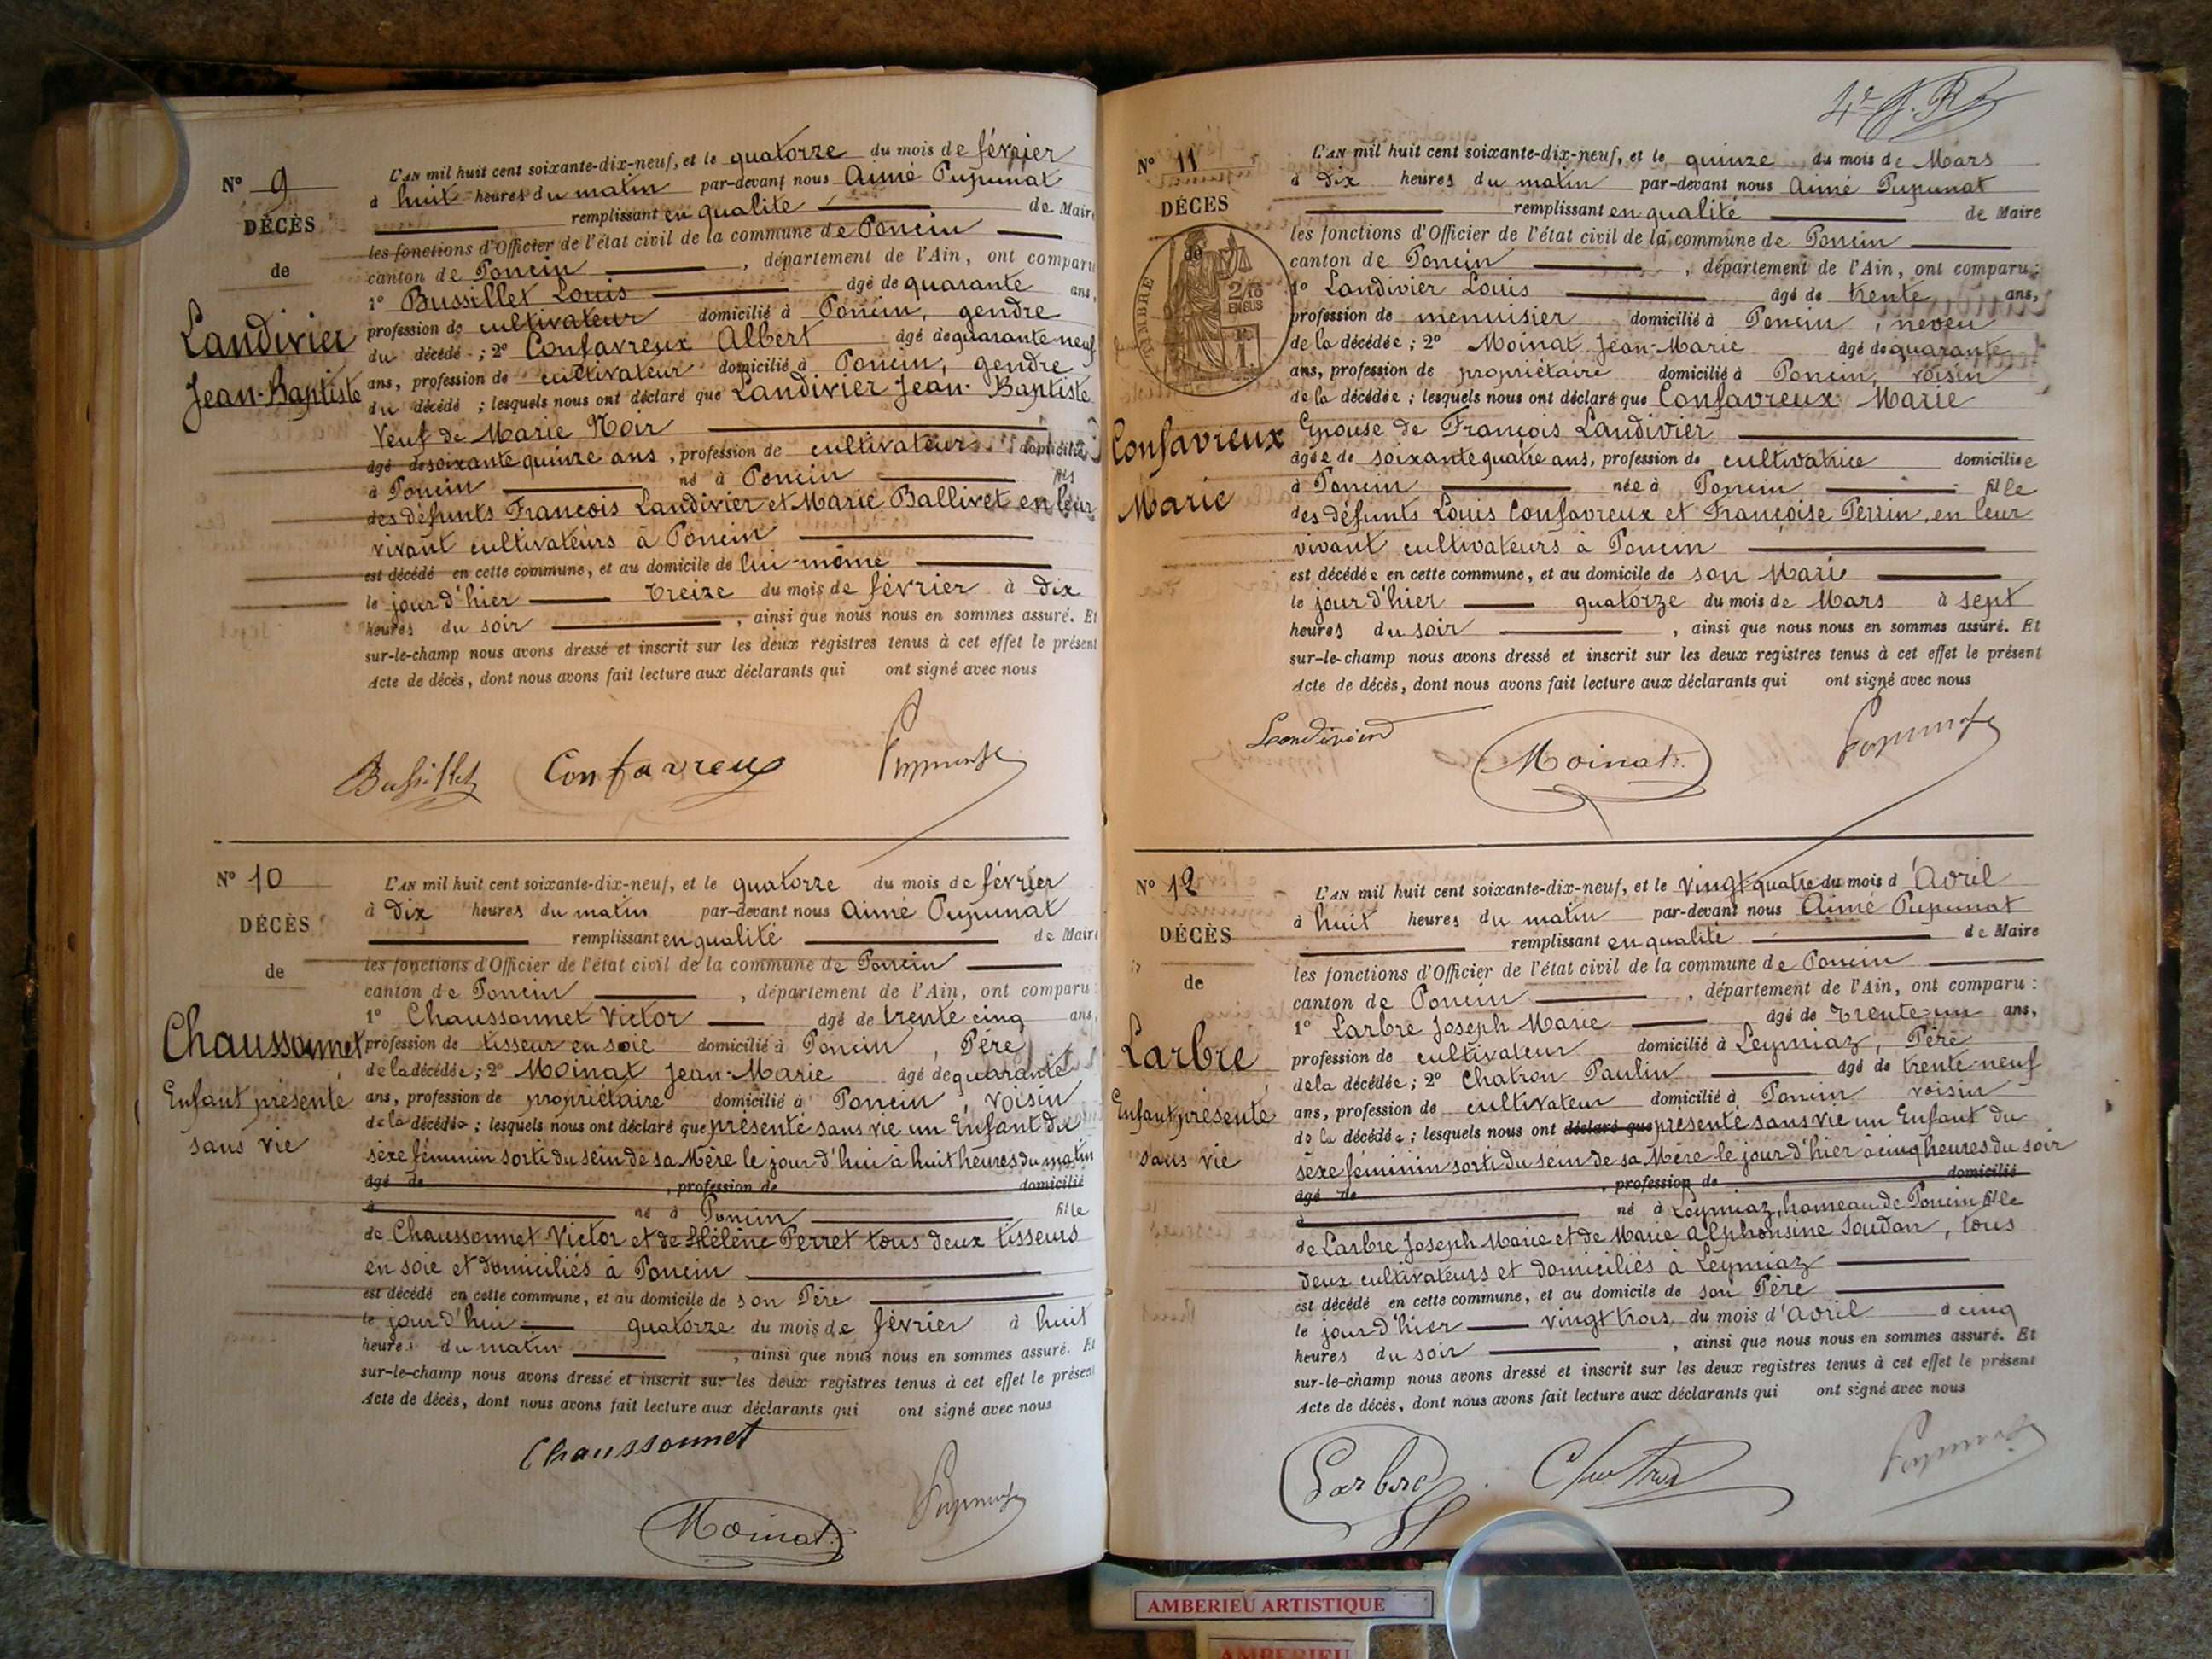 N° 9
DÉCÈS
de
Landivier
Jean-Baptiste
L'AN mil huit cent soixante-dix-neuf, et le quatorze du mois de février
à huit heures du matin par-devant nous Aimé Pupunat
remplissant en qualité de Maire
les fonctions d'Officier de l'état civil de la commune de Poncin
canton de Poncin, département de l'Ain, ont comparu
1° Bussillet Louis âgé de quarante ans,
profession de cultivateur domicilié à Poncin, gendre
du décédé ; 2° Confavreux Albert âgé de quarante neuf
ans, profession de cultivateur domicilié à Poncin, gendre
du décédé ; lesquels nous ont déclaré que Landivier Jean-Baptiste
Veuf de Marie Noir
âgé de soixante quinze ans, profession de cultivateur domicilié
à Poncin né à Poncin fils
des défunts François Landivier et Marie Ballivet en leur
vivant cultivateurs à Poncin
est décédé en cette commune, et au domicile de lui-même
le jour d'hier treize du mois de février à dix
heures du soir, ainsi que nous nous en sommes assuré. Et
sur-le-champ nous avons dressé et inscrit sur les deux registres tenus à cet effet le présent
Acte de décès, dont nous avons fait lecture aux déclarants qui ont signé avec nous
Bussillet Confavreux Pupunat
N° 10
DÉCÈS
de
Chaussonnet
Enfant présenté
sans vie
L'AN mil huit cent soixante-dix-neuf, et le quatorze du mois de février
à dix heures du matin par-devant nous Aimé Pupunat
remplissant en qualité de Maire
les fonctions d'Officier de l'état civil de la commune de Poncin
canton de Poncin, département de l'Ain, ont comparu :
1° Chaussonnet Victor âgé de trente cinq ans,
profession de tisseur en soie domicilié à Poncin, Père
de la décédée ; 2° Moinat Jean-Marie âgé de quarante
ans, profession de propriétaire domicilié à Poncin, voisin
de la décédée ; lesquels nous ont déclaré que présenté sans vie un Enfant du
sexe féminin sorti du sein de sa Mère le jour d'hui à huit heures du matin
âgé de , profession de domicilié
à né à Poncin fille
de Chaussonnet Victor et de Hélène Perret tous deux tisseurs
en soie et domiciliés à Poncin
est décédé en cette commune, et au domicile de son Père
le jour d'hui quatorze du mois de février à huit
heures du matin, ainsi que nous nous en sommes assuré. Et
sur-le-champ nous avons dressé et inscrit sur les deux registres tenus à cet effet le présent
Acte de décès, dont nous avons fait lecture aux déclarants qui ont signé avec nous
Chaussonnet
Moinat Pupunat
N° 11
DÉCÈS
de
TIMBRE
2/10
EN SUS
1
Confavreux
Marie
L'AN mil huit cent soixante-dix-neuf, et le quinze du mois de Mars
à dix heures du matin par-devant nous Aimé Pupunat
remplissant en qualité de Maire
les fonctions d'Officier de l'état civil de la commune de Poncin
canton de Poncin, département de l'Ain, ont comparu :
1° Landivier Louis âgé de trente ans,
profession de menuisier domicilié à Poncin, neveu
de la décédée ; 2° Moinat Jean-Marie âgé de quarante
ans, profession de propriétaire domicilié à Poncin, voisin
de la décédée ; lesquels nous ont déclaré que Confavreux Marie
Epouse de François Landivier
âgée de soixante quatre ans, profession de cultivatrice domiciliée
à Poncin née à Poncin fille
des défunts Louis Confavreux et Françoise Perrin, en leur
vivant cultivateurs à Poncin
est décédée en cette commune, et au domicile de son Mari
le jour d'hier quatorze du mois de Mars à sept
heures du soir, ainsi que nous nous en sommes assuré. Et
sur-le-champ nous avons dressé et inscrit sur les deux registres tenus à cet effet le présent
Acte de décès, dont nous avons fait lecture aux déclarants qui ont signé avec nous
Landivier Moinat Pupunat
N° 12
DÉCÈS
de
Larbre
Enfant présenté
sans vie
L'AN mil huit cent soixante-dix-neuf, et le vingt quatre du mois d'Avril
à huit heures du matin par-devant nous Aimé Pupunat
remplissant en qualité de Maire
les fonctions d'Officier de l'état civil de la commune de Poncin
canton de Poncin, département de l'Ain, ont comparu :
1° Larbre Joseph Marie âgé de trente-un ans,
profession de cultivateur domicilié à Leymiaz, Père
de la décédée ; 2° Chatron Paulin âgé de trente-neuf
ans, profession de cultivateur domicilié à Poncin voisin
de la décédée ; lesquels nous ont déclaré que présenté sans vie un Enfant du
sexe féminin sorti du sein de sa Mère le jour d'hier à cinq heures du soir
âgé de , profession de domicilié
à né à Leymiaz, hameau de Poncin fille
de Larbre Joseph Marie et de Marie Alphonsine Soudan, tous
deux cultivateurs et domiciliés à Leymiaz
est décédé en cette commune, et au domicile de son Père
le jour d'hier vingt trois du mois d'Avril à cinq
heures du soir, ainsi que nous nous en sommes assuré. Et
sur-le-champ nous avons dressé et inscrit sur les deux registres tenus à cet effet le présent
Acte de décès, dont nous avons fait lecture aux déclarants qui ont signé avec nous
Larbre Chatron Pupunat
AMBERIEU ARTISTIQUE
AMBERIEU